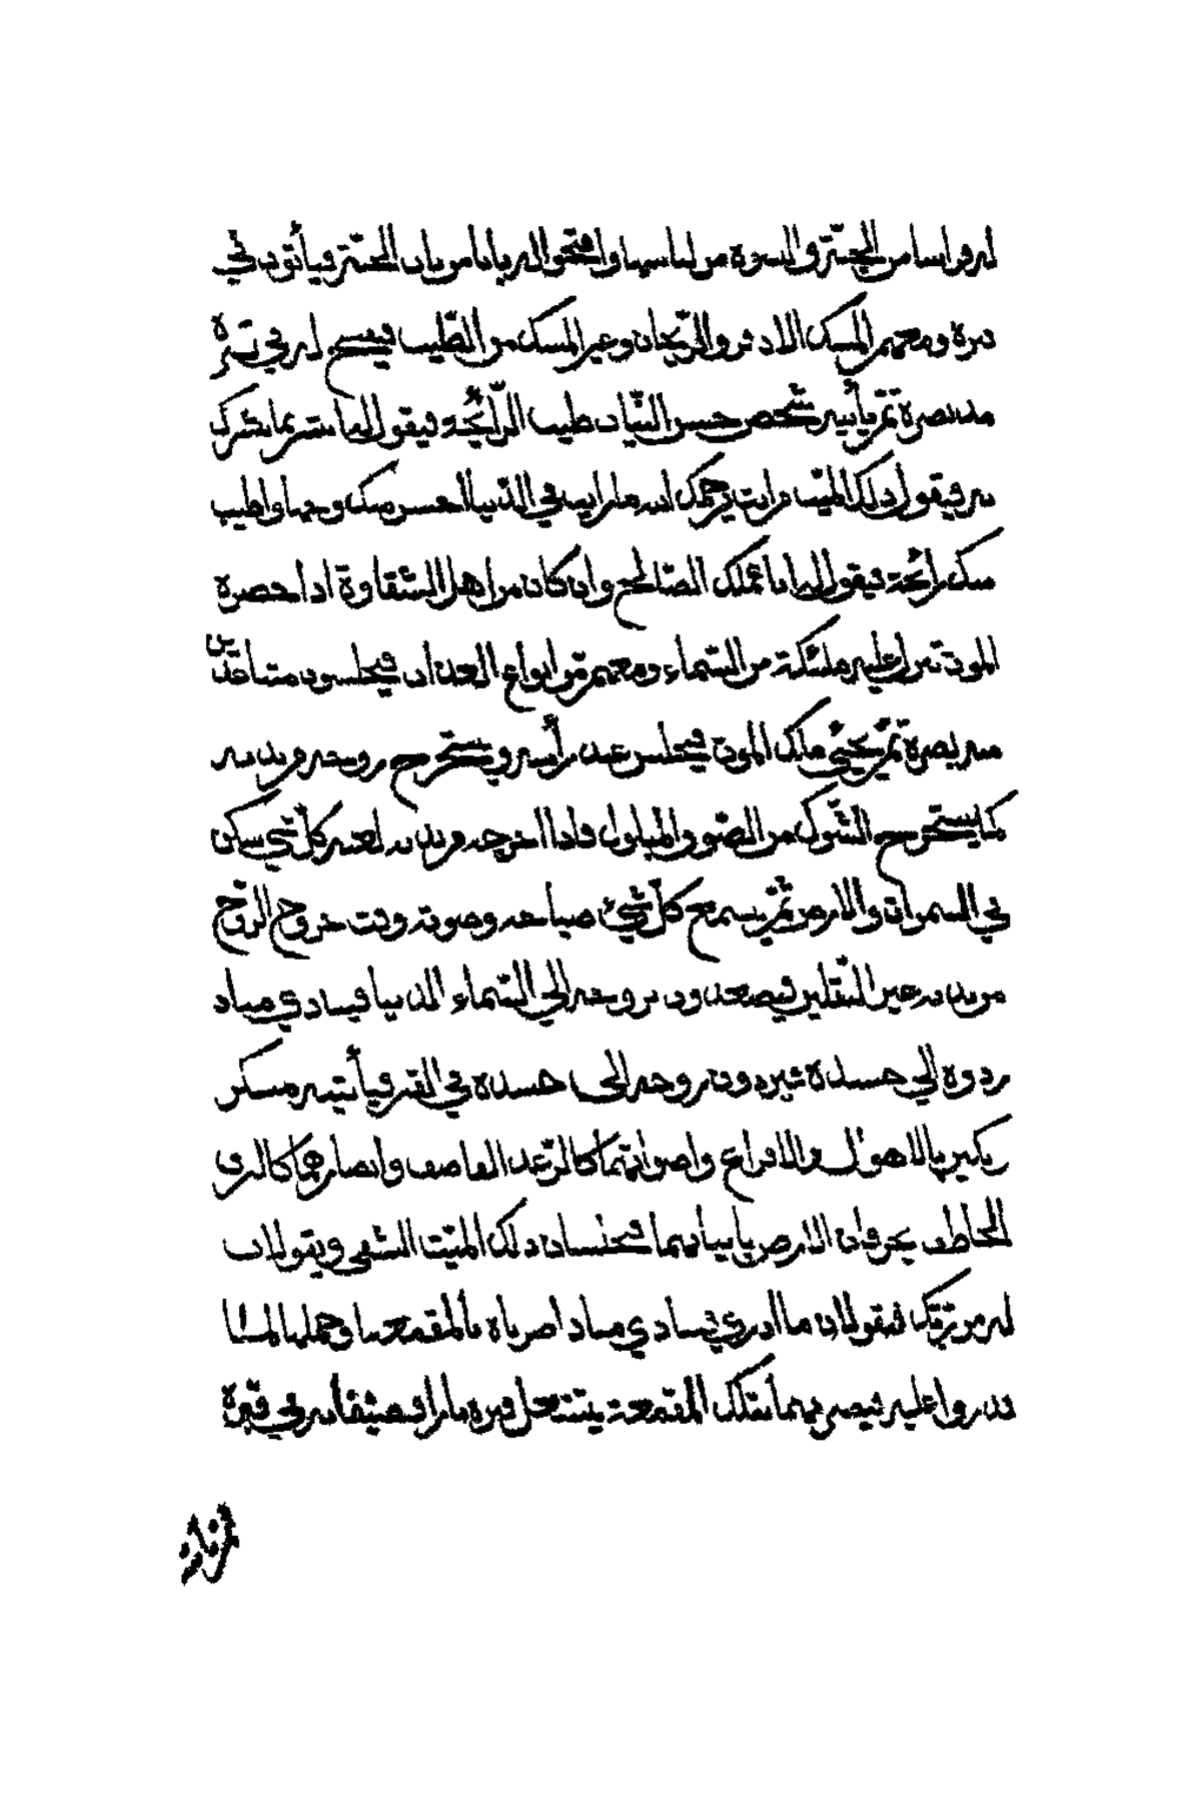 له فراشا من الجنّة والبسوه من لباسها وافتحوا له بابا من باب الجنّة فيأتون في
قبره ومعهم المسك الاذفر والرّيحان وغير المسك من الطّيب فيفسح له في قبره
مد بصره ثمّ يأتيه شخص حسن الثياب طيب الرّائحة فيقول له ابشر بما بشرك
به فيقول ذلك الميّت من انت يرحمك الله ما رايت في الدّنيا احسن منك وجها واطيب
منك رائحة فيقول له انا عملك الصّالح وان كان من اهل الشقاوة اذا حضره
الموت نزل عليه ملئكة من السّماء ومعهم من انواع العذاب فيجلسون متباعدين
منه بصره ثمّ يجئ ملك الموت فيجلس عند رأسه ويستخرج روحه من بدنه
كما يستخرج الشّوك من الصّوف المبلول فاذا اخرجه من بدنه لعنه كلّ شئ يسكن
في السموات والارض ثمّ يسمع كلّ شئ صياحه وصوته وقت خروج الرّوح
من بدنه غير الثقلين فيصعدون بروحه الى السّماء الدنيا فينادي مناد
ردوه الي جسده فيردون روحه الى جسده في القبر فيأتيه منكر
نكير بالاهوال والافزاع واصواتهما كالرّعد العاصف وابصارهما كالبرق
الخاطف يخرقان الارض بانيابهما فيجلسان ذلك الميّت الشقي ويقولان
له من ربّك فيقول ما ادري فينادي مناد اضرباه بالمقمعة
عليه فيضربهما بتلك المقمعة يشتعل قبره نارا في قبره